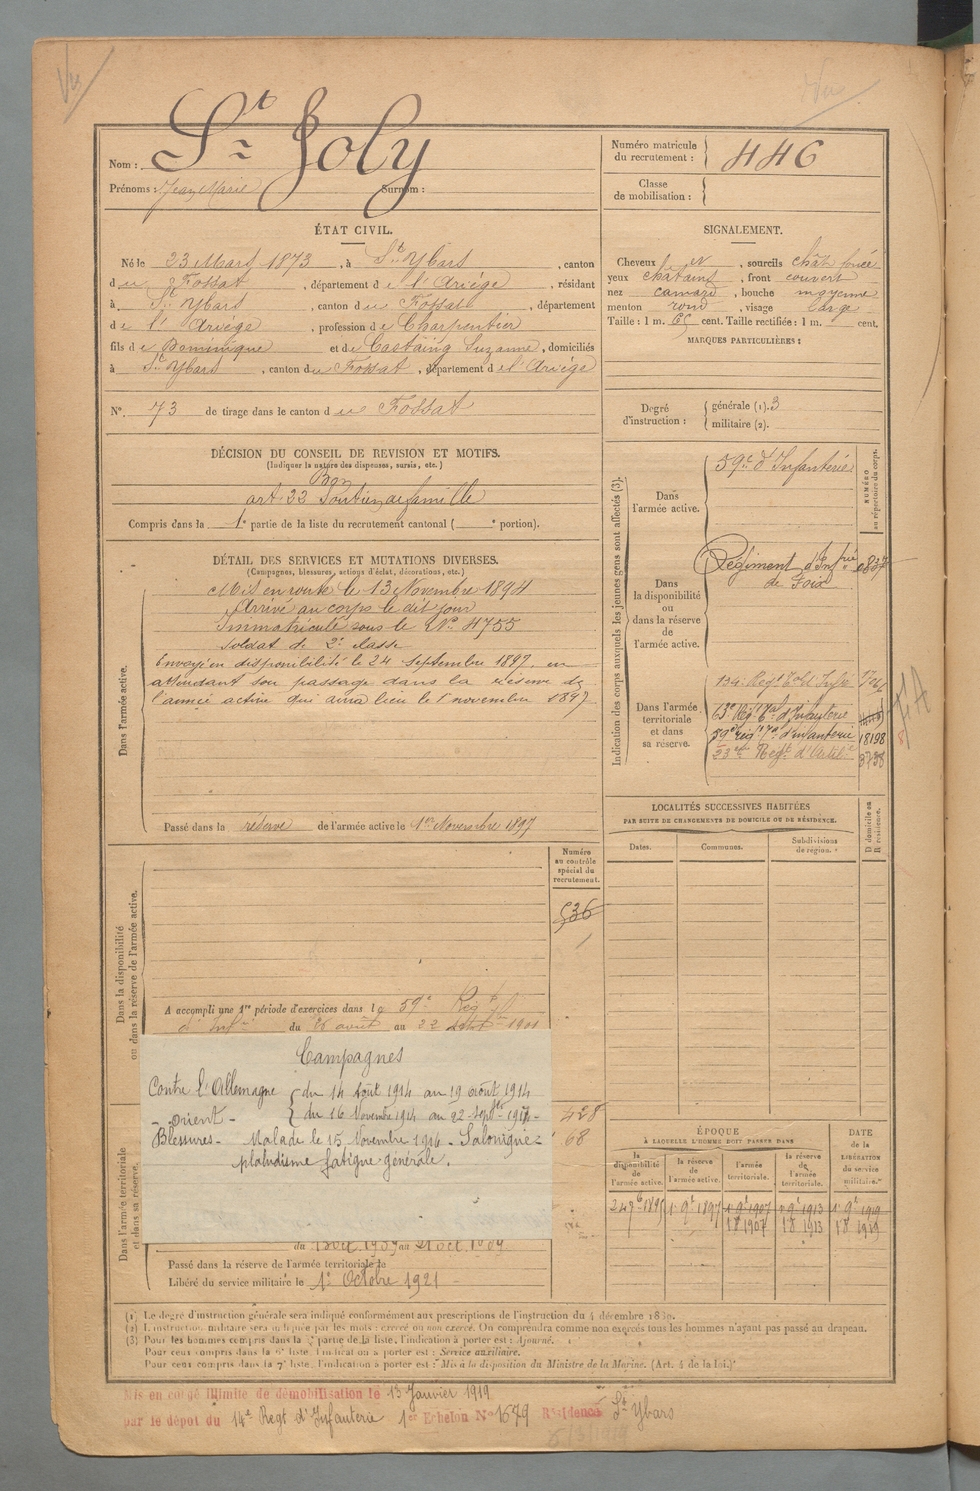 Nom : St Joly
Prénoms : Jean Marie Surnom :
Numéro matricule du recrutement : 446
Classe de mobilisation :
ÉTAT CIVIL.
Né le 23 Mars 1873, à St Ybars, canton
du Fossat, département de l'Ariège, résidant
à St Ybars, canton du Fossat, département
de l'Ariège, profession de Charpentier
fils de Dominique et de Castaing Suzanne, domiciliés
à St Ybars, canton du Fossat, département de l'Ariège
N° 73 de tirage dans le canton du Fossat
SIGNALEMENT.
Cheveux et, sourcils chât foncé
yeux châtains, front couvert
nez camard, bouche moyenne
menton rond, visage large
Taille : 1 m. 65 cent. Taille rectifiée : 1 m. cent.
MARQUES PARTICULIÈRES :
Degré d'instruction : générale (1). 3
militaire (2).
DÉCISION DU CONSEIL DE REVISION ET MOTIFS.
(Indiquer la nature des dispenses, sursis, etc.)
Bon
art. 22 Soutien de famille
Compris dans la 1e partie de la liste du recrutement cantonal ( e portion).
DÉTAIL DES SERVICES ET MUTATIONS DIVERSES.
(Campagnes, blessures, actions d'éclat, décorations, etc.)
Dans l'armée active.
Mis en route le 13 Novembre 1894
Arrivé au corps le dit jour
Immatriculé sous le N° 4755
Soldat de 2e classe
Envoyé en disponibilité le 24 Septembre 1897, en
attendant son passage dans la réserve de
l'armée active qui aura lieu le 1er novembre 1897
Passé dans la réserve de l'armée active le 1er Novembre 1897
Indication des corps auxquels les jeunes gens sont affectés (3).
NUMÉRO au répertoire du corps.
Dans l'armée active.
59e d'Infanterie
Dans la disponibilité ou dans la réserve de l'armée active.
Régiment d'Infrie
de Foix
Dans l'armée territoriale et dans sa réserve.
134e Regt Tal Infie
63e Rég. Tal d'Infanterie
59e rég. Tal d'infanterie 18198
23e Regt d'Artilie
LOCALITÉS SUCCESSIVES HABITÉES
PAR SUITE DE CHANGEMENTS DE DOMICILE OU DE RÉSIDENCE.
D. domicile ou R. résidence.
Dates. Communes. Subdivisions de région.
Dans la disponibilité ou dans la réserve de l'armée active.
Numéro au contrôle spécial du recrutement.
536
A accompli une 1re période d'exercices dans le 59e Rég t
d'Infie du 26 août au 22 Sept 1901
Campagnes
Contre l'Allemagne du 14 Août 1914 au 19 août 1914
- Orient - du 16 Novembre 1914 au 22 Septbre 1917 -
Blessures - Malade le 15 Novembre 1916 - Salonique -
paludisme fatigue générale.
428
68
Dans l'armée territoriale et dans sa réserve.
Passé dans la réserve de l'armée territoriale le
Libéré du service militaire le 1er Octobre 1921 -
ÉPOQUE
À LAQUELLE L'HOMME DOIT PASSER DANS
DATE de la LIBÉRATION du service militaire.
la disponibilité de l'armée active.
la réserve de l'armée active.
l'armée territoriale.
la réserve de l'armée territoriale.
1907 1913 1919
(1) Le degré d'instruction générale sera indiqué conformément aux prescriptions de l'instruction du 4 décembre 1889.
(2) L'instruction militaire sera indiquée par les mots : exercé ou non exercé. On comprendra comme non exercés tous les hommes n'ayant pas passé au drapeau.
(3) Pour les hommes compris dans la 5e partie de la liste, l'indication à porter est : Ajourné.
Pour ceux compris dans la 6e liste, l'indication à porter est : Service auxiliaire.
Pour ceux compris dans la 7e liste, l'indication à porter est : Mis à la disposition du Ministre de la Marine. (Art. 4 de la loi.)
Mis en congé illimité de démobilisation le 13 Janvier 1919
par le dépôt du 14e Regt d'Infanterie 1er Echelon N° 1679 Résidence St Ybars